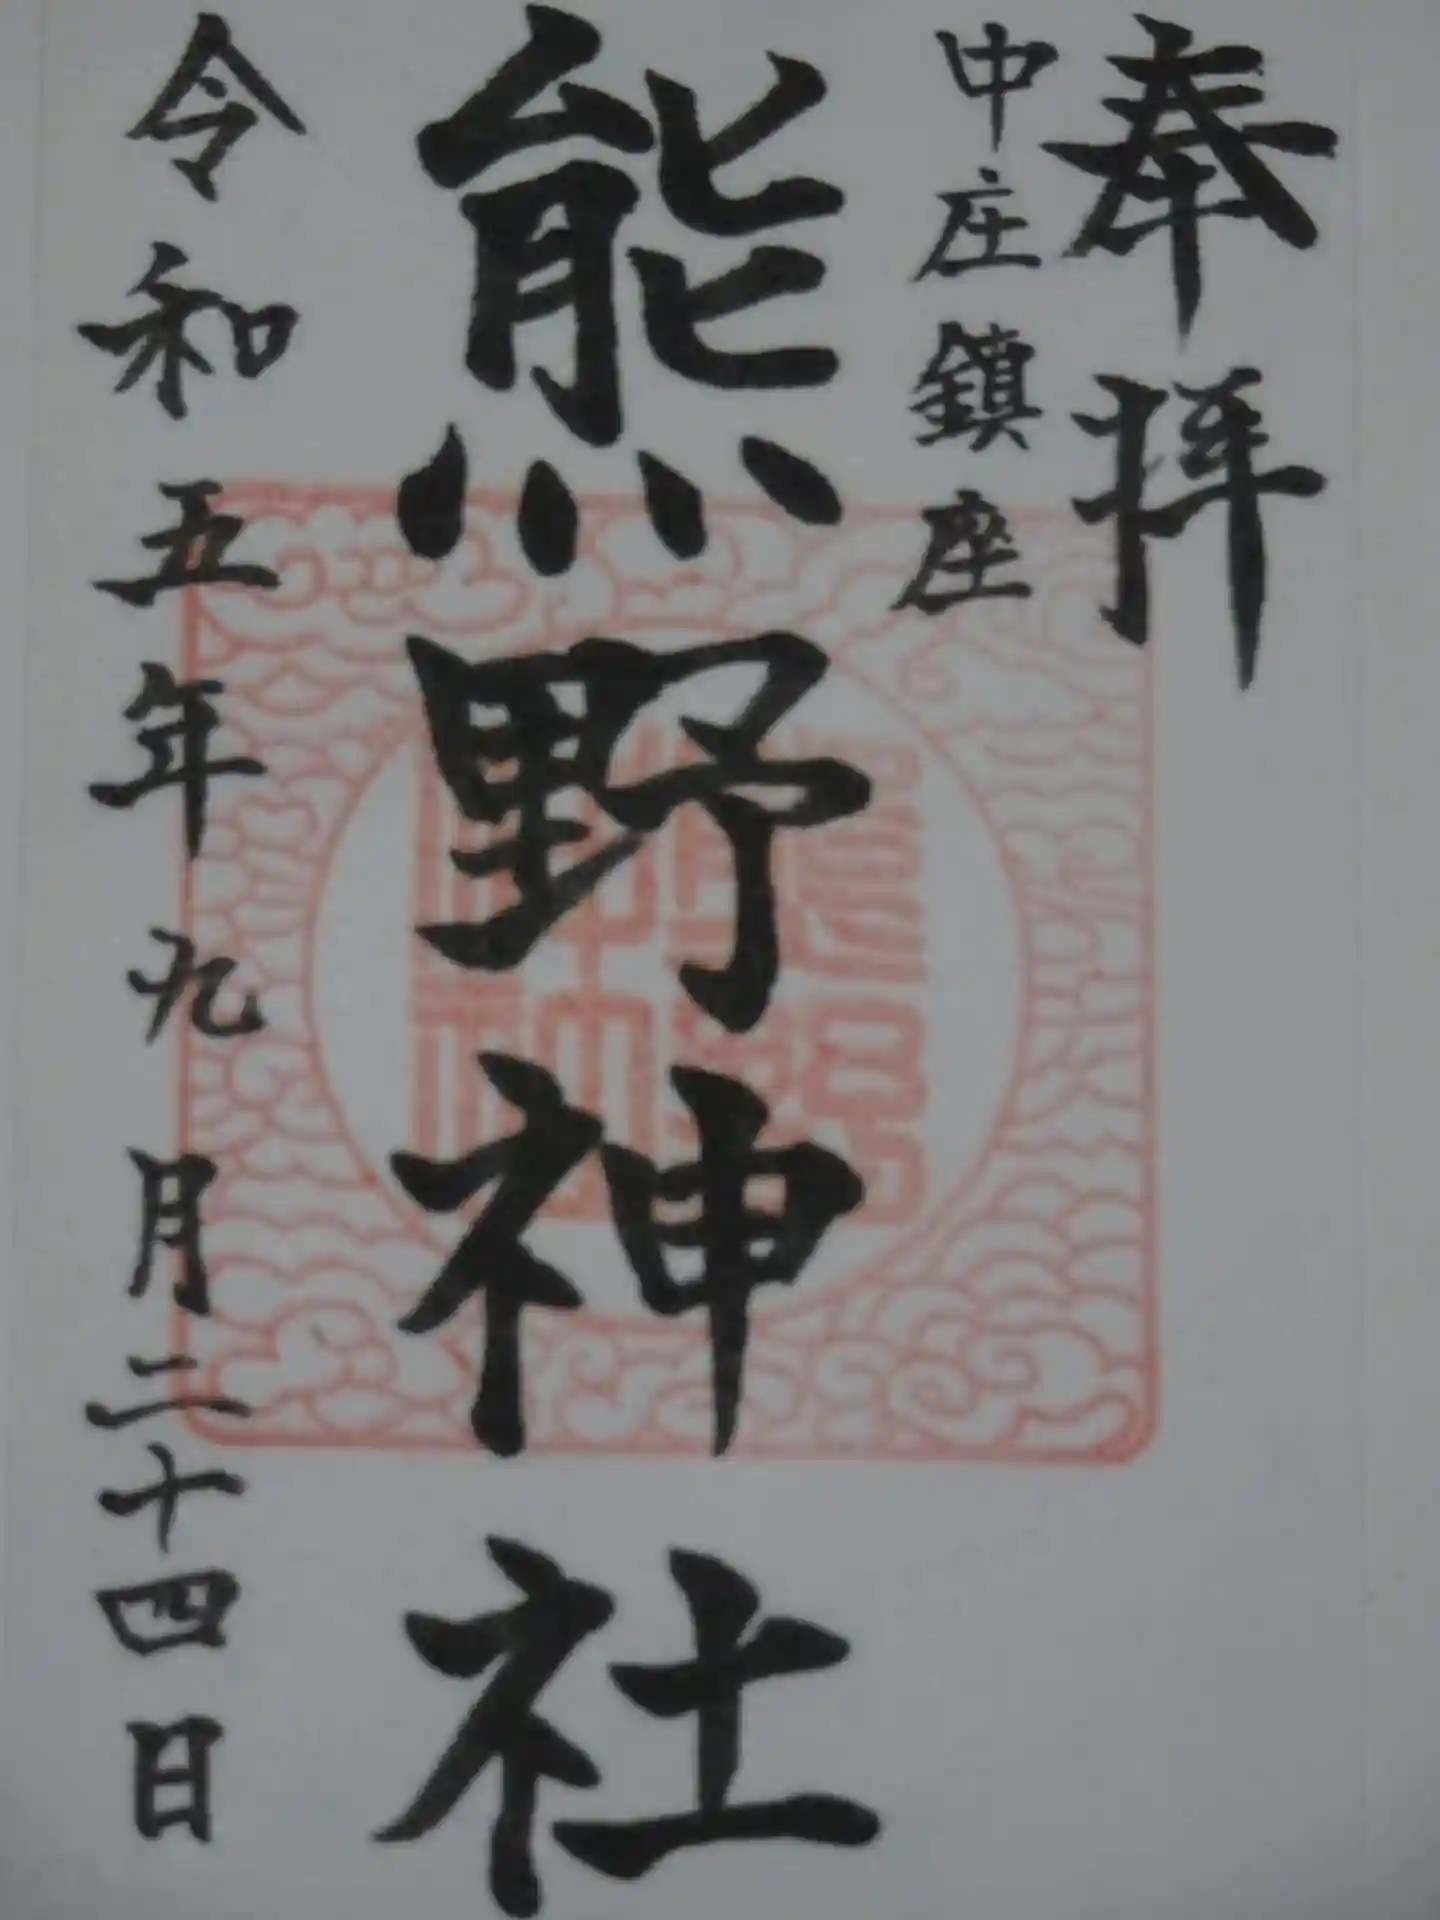 奉拝
中庄鎮座
熊野神社
令和五年九月二十四日